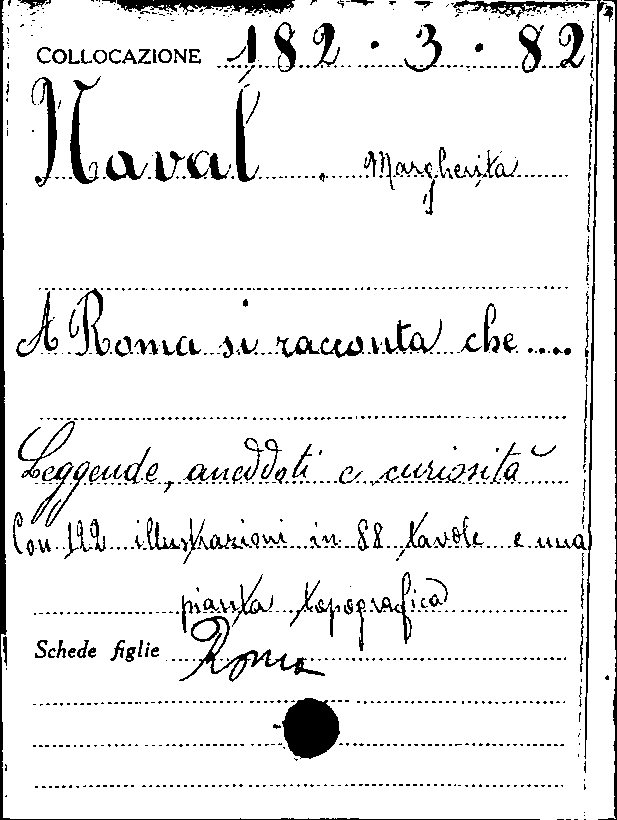 COLLOCAZIONE 182 . 3 . 82
Naval . Margherita
A Roma si racconta che.....
Leggende, aneddoti e curiosità
Con 122 illustrazioni in 88 tavole e una
pianta topografica
Schede figlie Roma